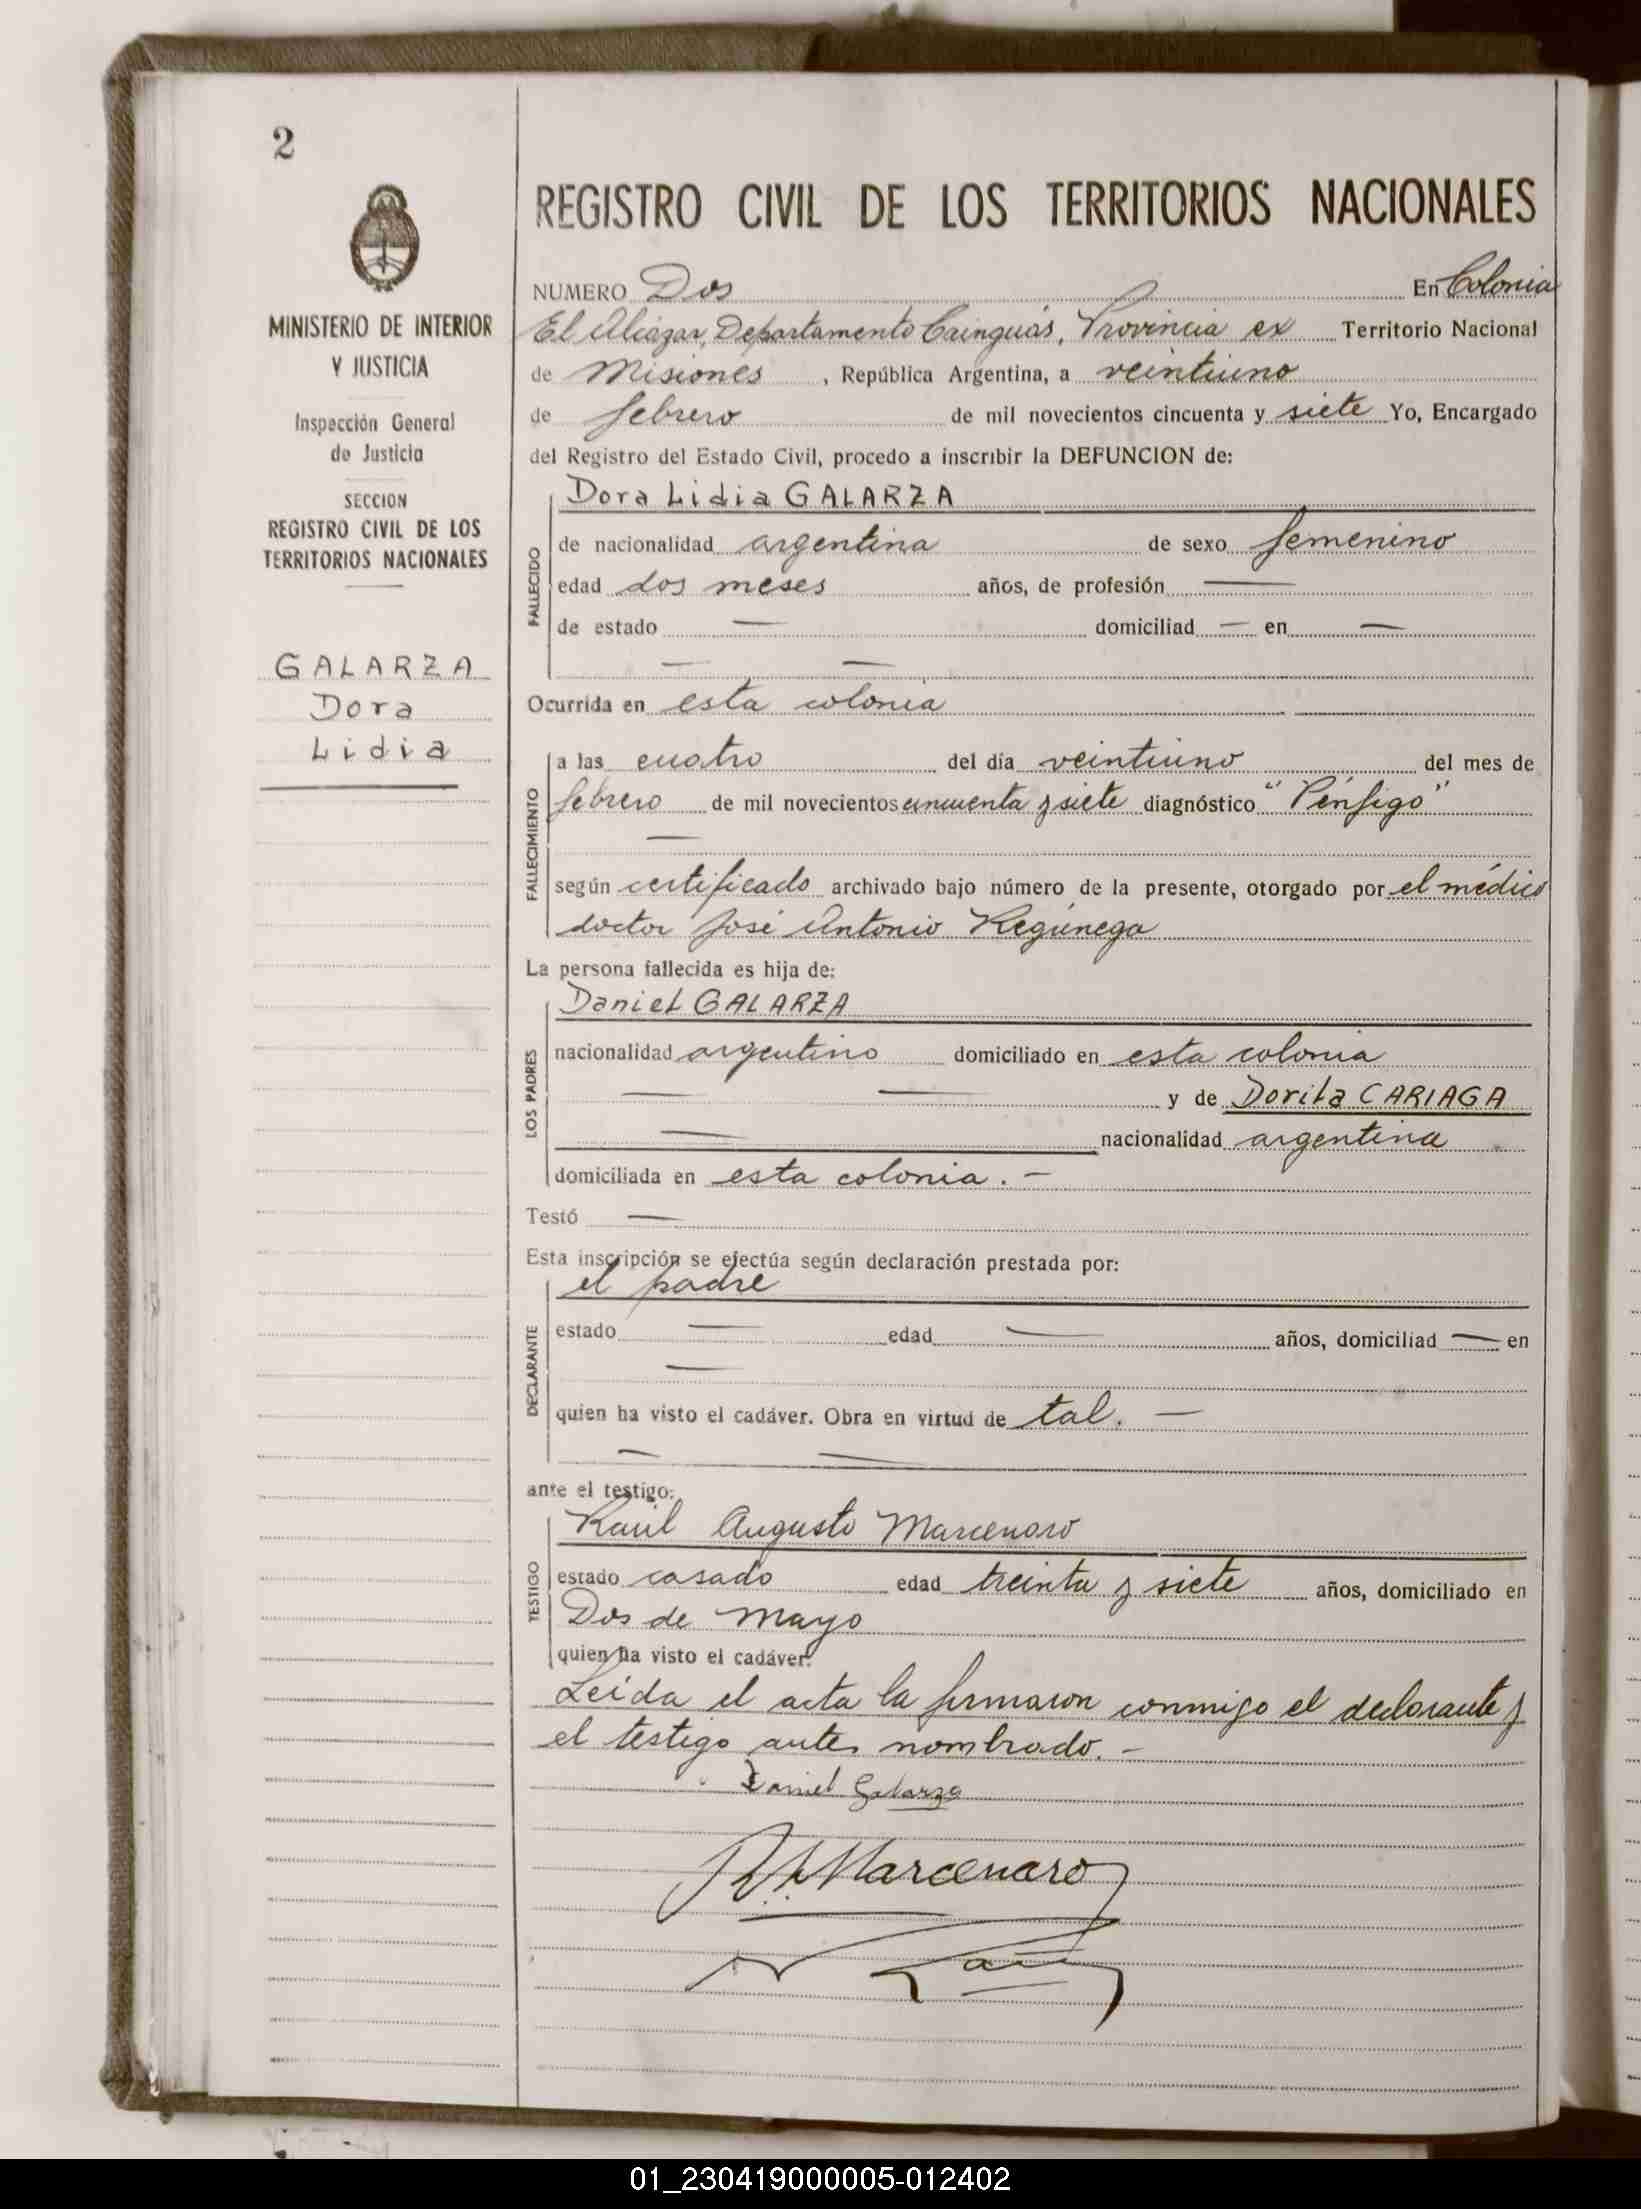 2
MINISTERIO DE INTERIOR
Y JUSTICIA
Inspección General
de Justicia
SECCION
REGISTRO CIVIL DE LOS
TERRITORIOS NACIONALES
GALARZA
Dora
Lidia
REGISTRO CIVIL DE LOS TERRITORIOS NACIONALES
NUMERO Dos En Colonia
El Alcázar, Departamento Cainguás, Provincia ex Territorio Nacional
de Misiones, República Argentina, a veintiuno
de febrero de mil novecientos cincuenta y siete Yo, Encargado
del Registro del Estado Civil, procedo a inscribir la DEFUNCION de:
FALLECIDO
Dora Lidia GALARZA
de nacionalidad argentina de sexo femenino
edad dos meses años, de profesión —
de estado — domiciliad — en —
— —
Ocurrida en esta colonia
FALLECIMIENTO
a las cuatro del día veintiuno del mes de
febrero de mil novecientos cincuenta y siete diagnóstico "Pénfigo"
—
según certificado archivado bajo número de la presente, otorgado por el médico
doctor José Antonio
La persona fallecida es hija de:
LOS PADRES
Daniel GALARZA
nacionalidad argentino domiciliado en esta colonia
— — y de Dorila CARIAGA
— nacionalidad argentina
domiciliada en esta colonia. —
Testó —
Esta inscripción se efectúa según declaración prestada por:
DECLARANTE
el padre
estado — edad — años, domiciliad — en
—
quien ha visto el cadáver. Obra en virtud de tal. —
— —
ante el testigo:
TESTIGO
Raúl Augusto Marcenaro
estado casado edad treinta y siete años, domiciliado en
Dos de Mayo
quien ha visto el cadáver.
Leída el acta la firmaron conmigo el declarante y
el testigo antes nombrado. —
Daniel Galarza
R A Marcenaro
01_230419000005-012402